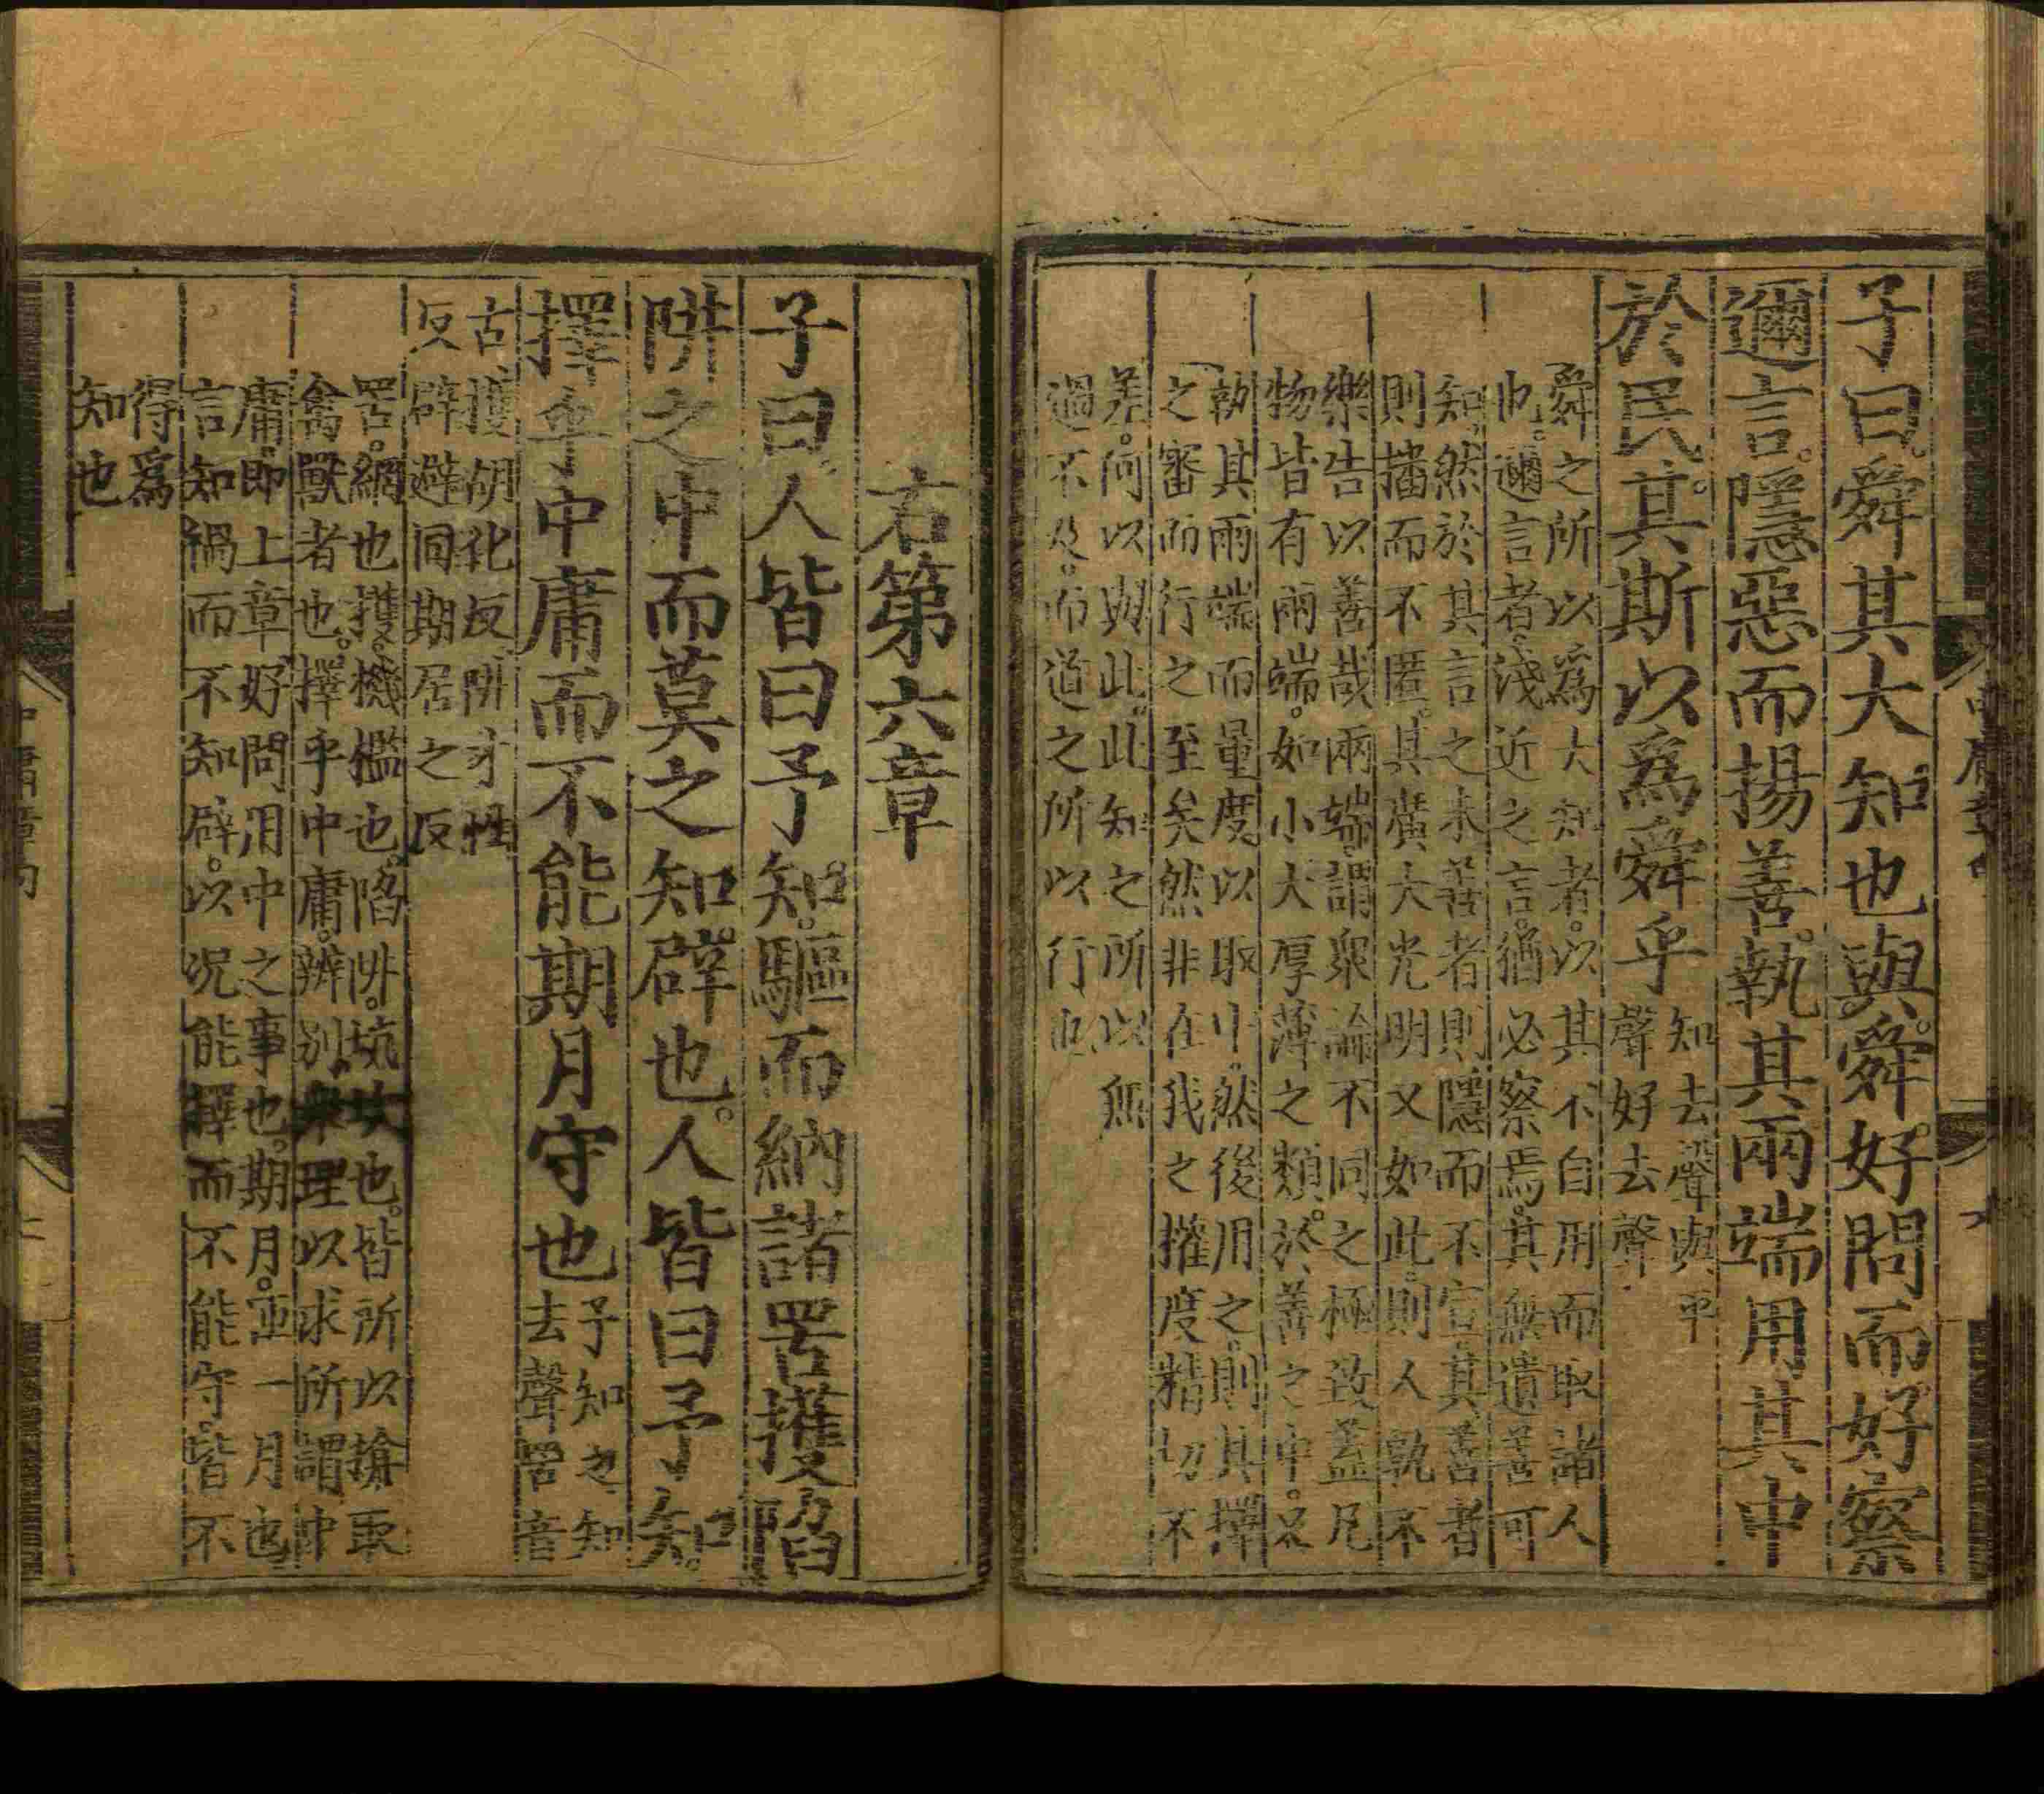 子曰舜其大知也與舜好問而好察
邇言隱惡而揚善執其兩端用其中
於民其斯以爲舜乎
知去聲與平
聲好去聲
舜之所以爲大知者以其不自用而取諸人
也邇言者淺近之言猶必察焉其無遺善可
知然於其言之未善者則隱而不宣其善者
則播而不匿其廣大光明又如此則人孰不
樂告以善哉兩端謂衆論不同之極致蓋凡
物皆有兩端如小大厚薄之類於善之中又
執其兩端而量度以取中然後用之則其擇
之審而行之至矣然非在我之權度精切不
差何以與此此知之所以無
過不及而道之所以行也
右第六章
子曰人皆曰予知驅而納諸罟擭陷
阱之中而莫之知辟也人皆曰予知
擇乎中庸而不能期月守也
予知之知
去聲罟音
古擭胡化反阱才性
反辟避同期居之反
罟網也擭機檻也陷阱坑坎也皆所以揜取
禽獸者也擇乎中庸辨别衆理以求所謂中
庸即上章好問用中之事也期月匝一月也
言知禍而不知辟以况能擇而不能守皆不
得爲
知也
中庸章句